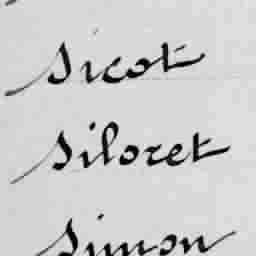 Sicot
Siloret
Simon